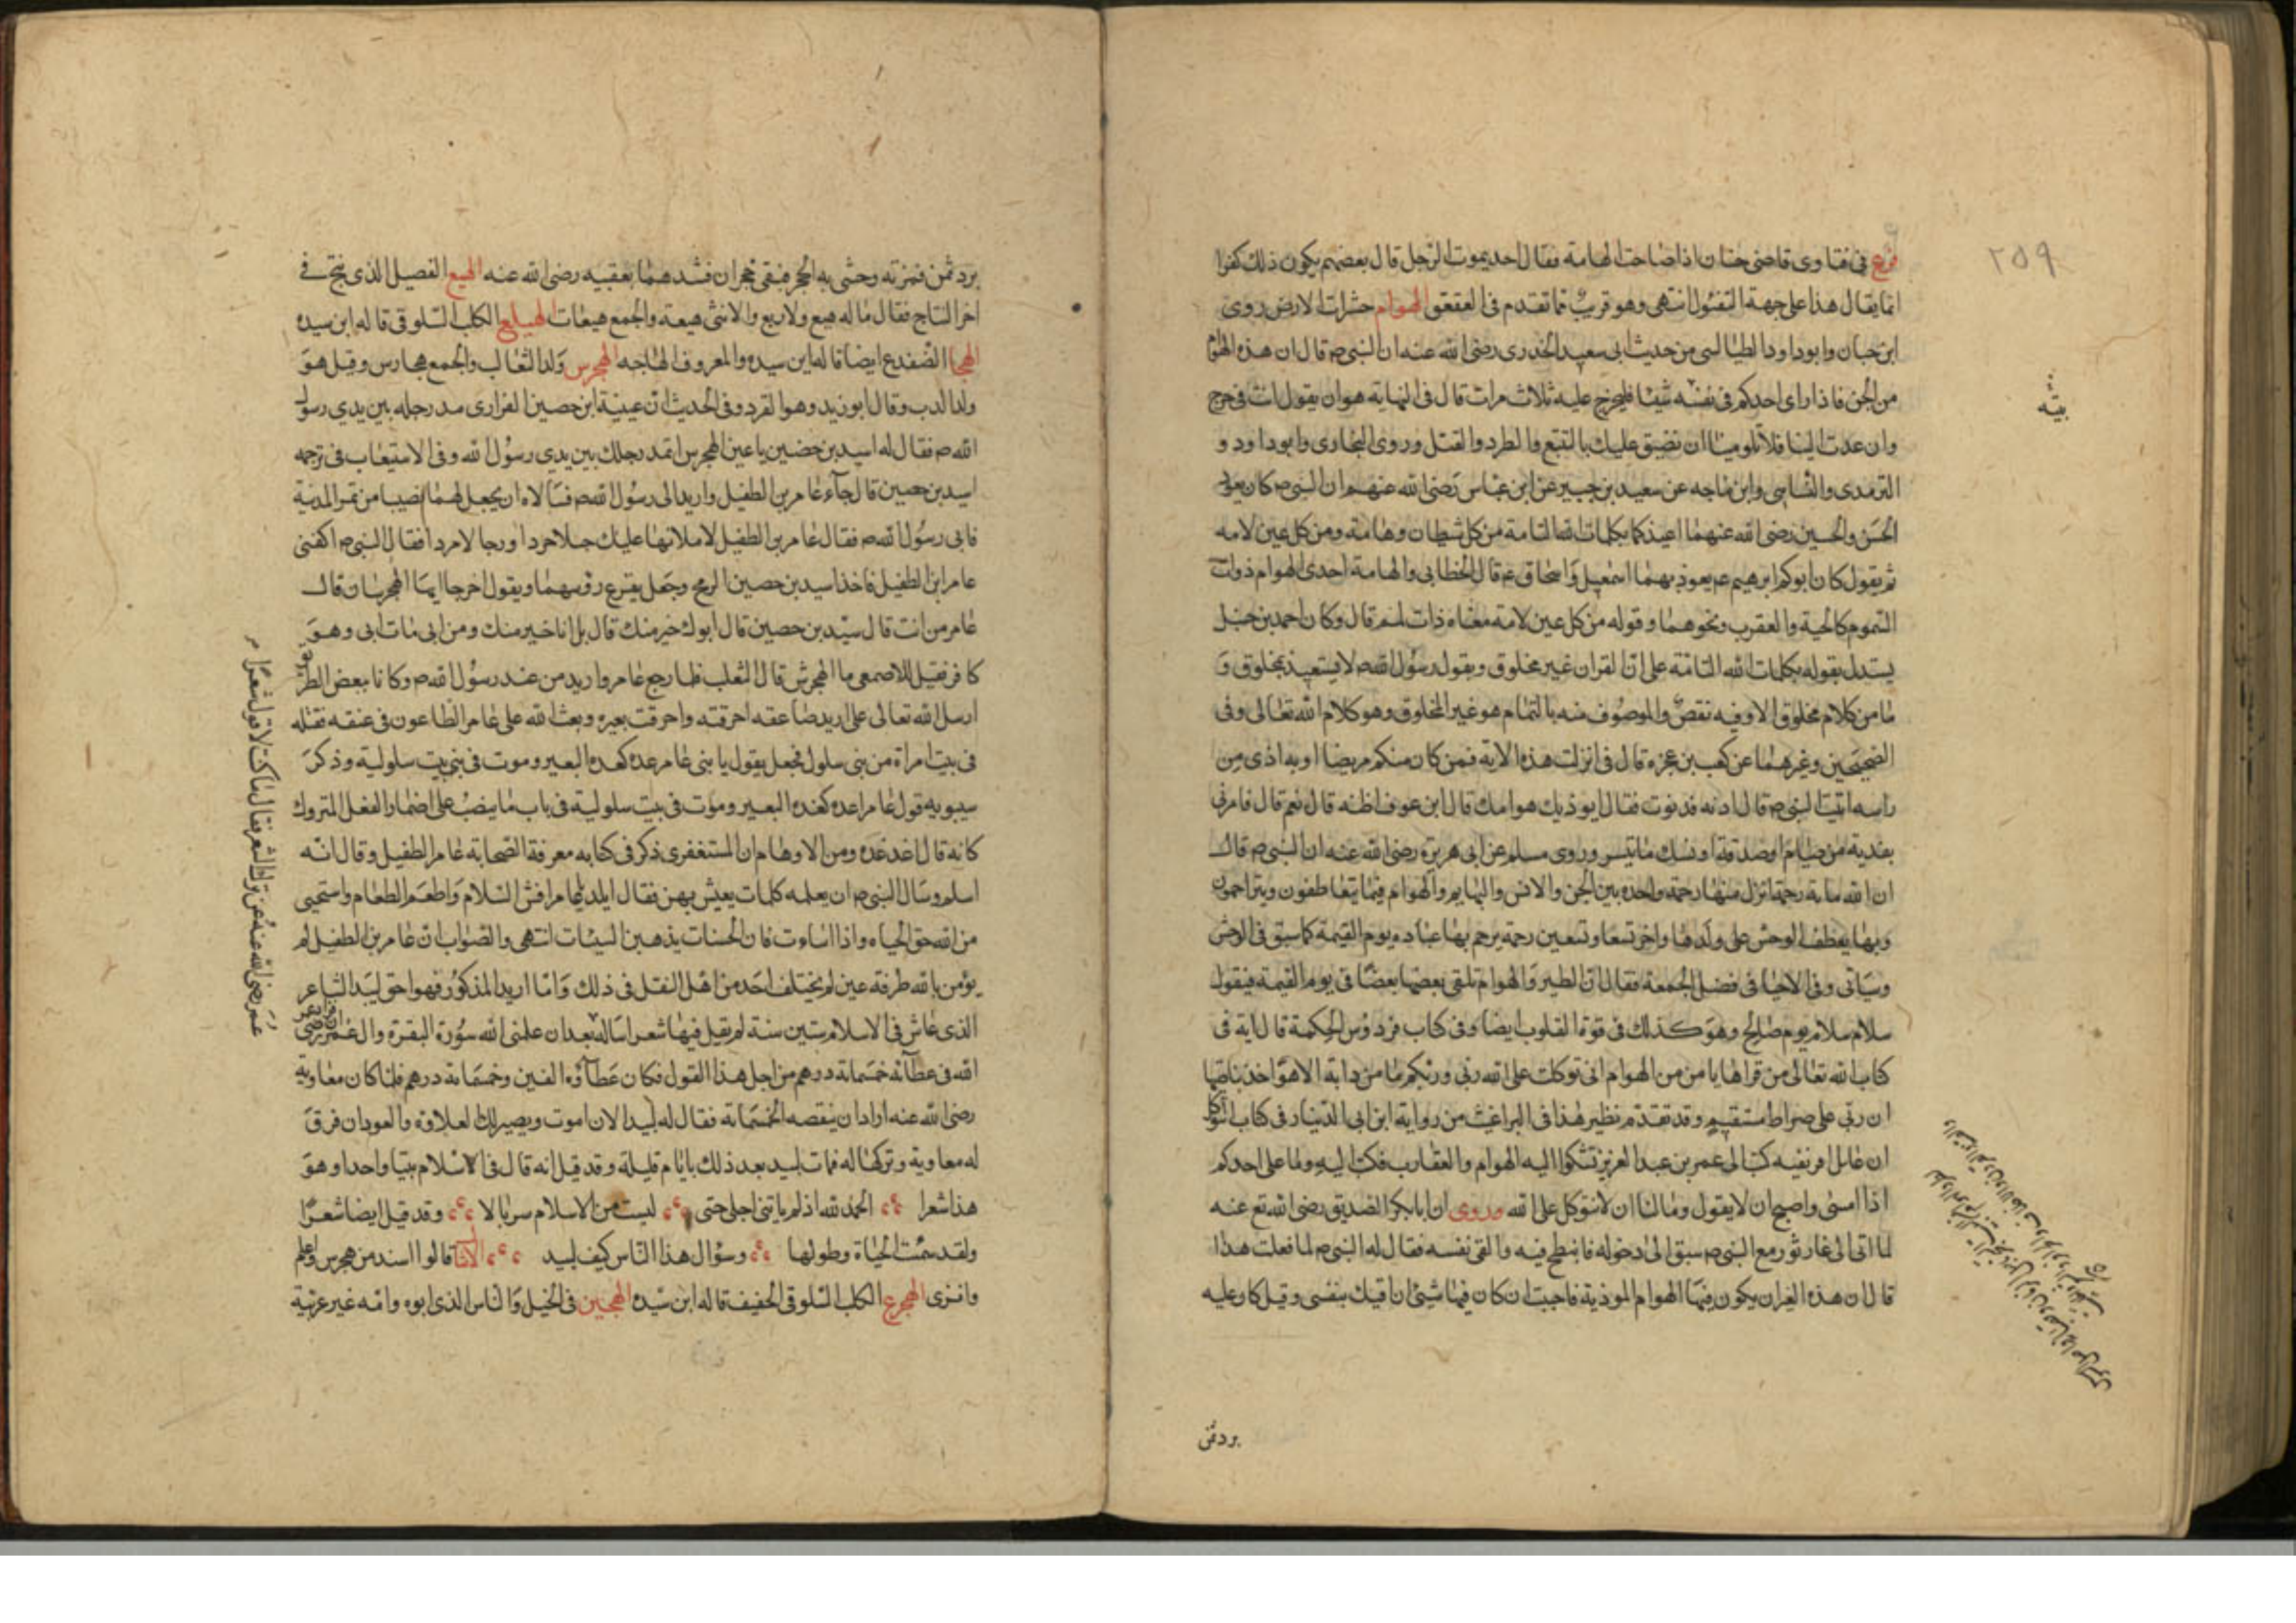 ٢٥٩
فرع فى فتاوى قاضى خان اذا صاحت الهامة فقال احد يموت الرجل قال بعضهم يكون ذلك كفرا
انما يقال هذا على جهة التفئول انتهى وهو قريب مما تقدم فى العقعق الهوام حشرات الارض روى
ابن حبان وابو داود الطيالسى من حديث ابى سعيد الخدرى رضى الله عنه ان النبى ص قال ان هذه الهوام
من الجن فاذا راى احدكم فى بيته شيئا فليحرج عليه ثلاث مرات قال فى النهاية هو ان يقول انت فى حرج
بيته
وان عدت الينا فلا تلومينا ان نضيق عليك بالتتبع والطرد والقتل وروى البخارى وابو داود و
الترمدى والنسايى وابن ماجه عن سعيد بن جبير عن ابن عباس رضى الله عنهم ان النبى ص كان يعوذ
الحسن والحسين رضى الله عنهما اعيذكما بكلمات الله التامة من كل شيطان وهامة ومن كل عين لامه
ثم يقول كان ابوكم ابرهيم عم يعوذ بهما اسمعيل واسحاق عم قال الخطابى والهامة احدى الهوام ذوات
السموم كالحية والعقرب ونحوهما وقوله من كل عين لامه معناه ذات لمم قال وكان احمد بن حنبل
يستدل بقوله بكلمات الله التامة على ان القران غير مخلوق ويقول رسول الله ص لا يستعيذ بمخلوق و
ما من كلام مخلوق الا وفيه نقص والموصوف منه بالتمام هو غير المخلوق وهو كلام الله تعالى وفى
الصحيحين وغيرهما عن كعب بن عجزه قال فى انزلت هذه الاية فمن كان منكم مريضا او به اذى من
راسه اتيت النبى ص قال ادنه فدنوت فقال ايوذيك هوامك قال ابن عوف اظنه قال نعم قال فامرنى
بفدية من صيام او صدقة او نسك ما تيسر وروى مسلم عن ابى هريرة رضى الله عنه ان النبى ص قال
ان لله ماية رحمة انزل منها رحمة واحده بين الجن والانس والبهايم والهوام فبها يتعاطفون ويتراحمون
وبها يعطف الوحش على ولدها واخر تسعا وتسعين رحمة يرحم بها عباده يوم القيمة كما سبق فى الوحش
وسياتى وفى الاحيا فى فضل الجمعة فقال ان الطير والهوام تلقى بعضها بعضا فى يوم القيمة فيقول
سلام سلام يوم صالح وهو كذلك فى قوة القلوب ايضا وفى كتاب فردوس الحكمة قال اية فى
كتاب الله تعالى من قراها يامن من الهوام انى توكلت على الله ربى وربكم ما من دابة الا هو اخذ بناصيتها
ان ربى على صراط مستقيم وقد تقدم نظير هذا فى البراغيث من رواية ابن ابى الدنيا فى كتاب التوكل
ان عامل افريقيه كتب الى عمر بن عبد العزيز تشكوا اليه الهوام والعقارب فكتب اليه وما على احدكم
اذا امسى واصبح ان لا يقول وما لنا ان لا نتوكل على الله وروى ان ابا بكر الصديق رضى الله تع عنه
لما اتى الى غار ثور مع النبى ص سبق الى دخوله فانبطح فيه والقى نفسه فقال له النبى ص لما فعلت هذا
قال ان هذه الغيران يكون فيها الهوام الموذية فاحببت ان كان فيها شيئ ان اقيك بنفسى وقيل كان عليه
برد ثمن
برد ثمن فمزته وحشى به الحجر فبقى حجران فشدهما بعقبيه رضى الله عنه الهبع الفصيل الذى ينتج فى
اخر النتاج فقال ما له هبع ولا ربع والانثى هبعة والجمع هبعات الهبلع الكلب السلوقى قاله ابن سيده
الهجا الضفدع ايضا قاله ابن سيده والمعروف الهاجه الهجرس ولد الثعالب والجمع هجارس وقيل هو
ولد الدب وقال ابو زيد وهو القرد وفى الحديث ان عيينة ابن حصين الفزارى مد رجله بين يدى رسول
الله ص فقال له اسيد بن حضين يا عين الهجرس اتمد رجلك بين يدى رسول الله وفى الاستيعاب فى ترجمه
اسيد بن حصين قال جآء عامر بن الطفيل واربد الى رسول الله ص فسالاه ان يجعل لهما نصيبا من تمر المدينة
فابى رسول الله ص فقال عامر بن الطفيل لاملانها عليك خيلا جردا ورجالا مردا فقال النبى ص اكفنى
عامر ابن الطفيل فاخذ اسيد بن حصين الرمح وجعل يقرع رؤسهما ويقول اخرجا ايها الهجرسان قال
عامر من انت قال سيد بن حصين قال ابوك خير منك قال بل انا خير منك ومن ابى مات ابى وهو
كافر فقيل للاصمعى ما الهجرش قال الثعلب فلما رجع عامر واربد من عند رسول الله ص وكانا ببعض الطريق
ارسل الله تعالى على اربد صاعقه احرقته واحرقت بعيره وبعث الله على عامر الطاعون فى عنقه فقتله
فى بيت امراة من بنى سلول فجعل يقول يا بنى عامر غده كغده البعير وموت فى بيت سلولية وذكر
سيبويه قول عامر اعده كغده البعير وموت فى بيت سلولية فى باب ما ينصب على اضمار الفعل المتروك
كانه قال اغد غده ومن الاوهام ان المستغفرى ذكر فى كتابه معرفة الصحابة عامر الطفيل وقال انه
اسلم وسال النبى ص ان يعلمه كلمات يعيش بهن فقال يا عامر افش السلام واطعم الطعام واستحيى
من الله حق الحياء واذا اساءت فان الحسنات يذهبن السيئات انتهى والصواب ان عامر بن الطفيل لم
يؤمن بالله طرفة عين لم يختلف احد من اهل النقل فى ذلك واما اربد المذكور فهو اخو لبيد الشاعر
الذى عاش فى الاسلام ستين سنة لم يقل فيها شعرا
عمر رضى الله عنه عن تركه الشعر فقال ما كنت لاقول شعرا
بعد ان علمنى الله سورة البقرة وال عمران فزاد عمر رضى
الله فى عطآئه خمسمائة درهم من اجل هذا القول فكان عطآؤه الفين وخمسمائة درهم فلما كان معاوية
رضى الله عنه اراد ان ينقصه الخمسمائة فقال له لبيد الان اموت ويصير لك العلاوة والعودان فرق
له معاوية وتركها له فمات لبيد بعد ذلك بايام قليلة وقد قيل انه قال فى الاسلام بيتا واحدا وهو
هذا شعرا الحمد لله اذ لم ياتنى اجلى حتى لبست من الاسلام سربالا وقد قيل ايضا شعرا
ولقد سئمت الحياة وطولها وسؤال هذا الناس كيف لبيد الامثال قالوا اسند من هجرس واعلم
وانزى الهجرع الكلب السلوقى الخفيف قاله ابن سيده الهجين فى الخيل والناس الذى ابوه وامه غير عربية